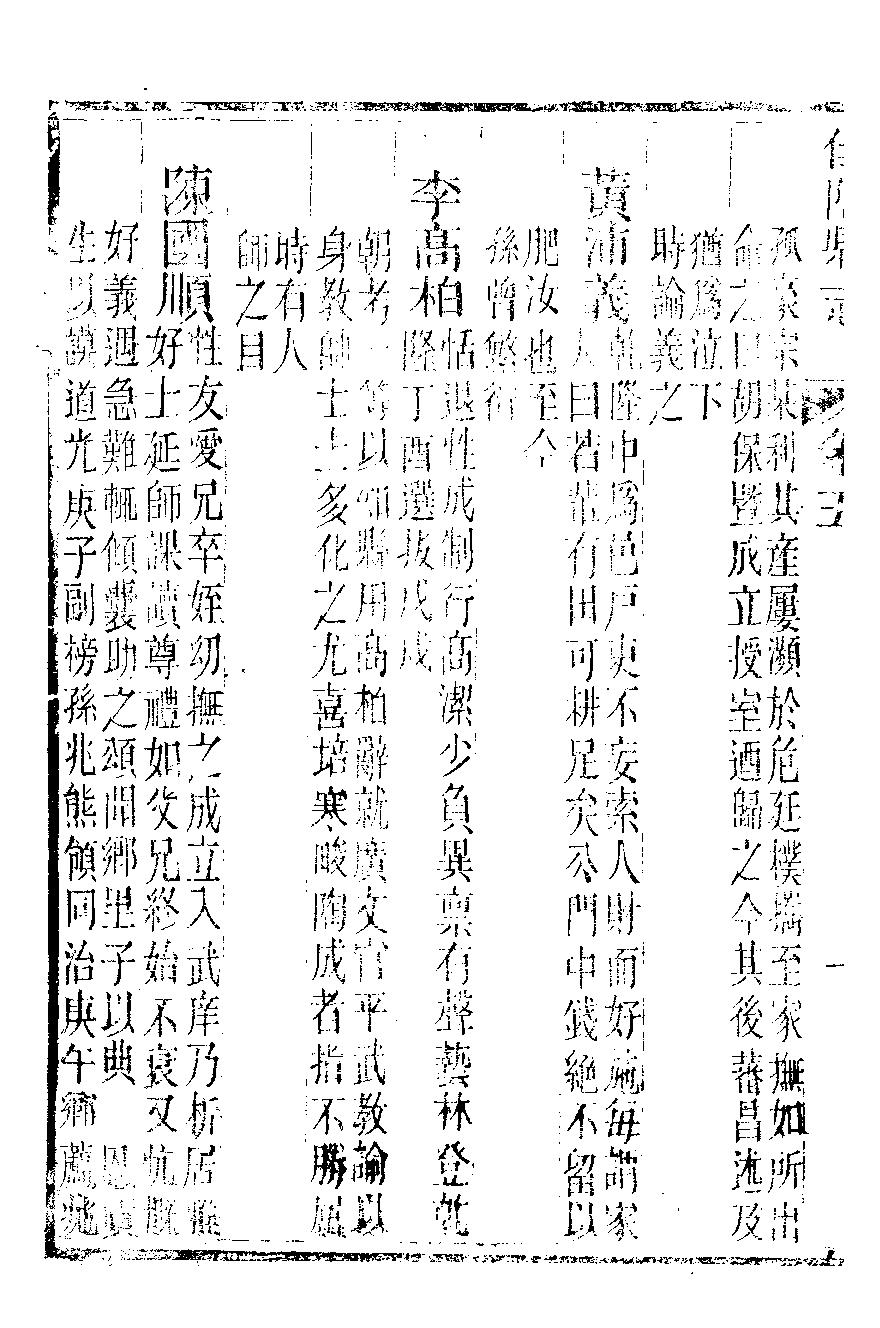 孤豪宗某利其產屢瀕於危廷樸攜至家撫如所出
命之曰胡保暨成立授室迺歸之今其後蕃昌述及
猶爲泣下
時論義之
黃沛義乾隆中爲邑戶吏不妄索人財而好施每謂家
人曰若輩有田可耕足矣公門中錢絕不留以
肥汝也至今
孫曾繁衍
李高柏恬退性成制行高潔少負異稟有聲藝林登乾
隆丁酉選拔戊戌
朝考一等以知縣用高柏辭就廣文官平武教諭以
身教帥士士多化之尤喜培寒畯陶成者指不勝屈
時有人
師之目
陳國順性友愛兄卒姪幼撫之成立入武庠乃析居雅
好士延師課讀尊禮如父兄終始不衰又慷慨
好義遇急難輒傾囊助之頌聞鄉里子以典 恩貢
生以謨道光庚子副榜孫兆熊領同治庚午鄉薦兆